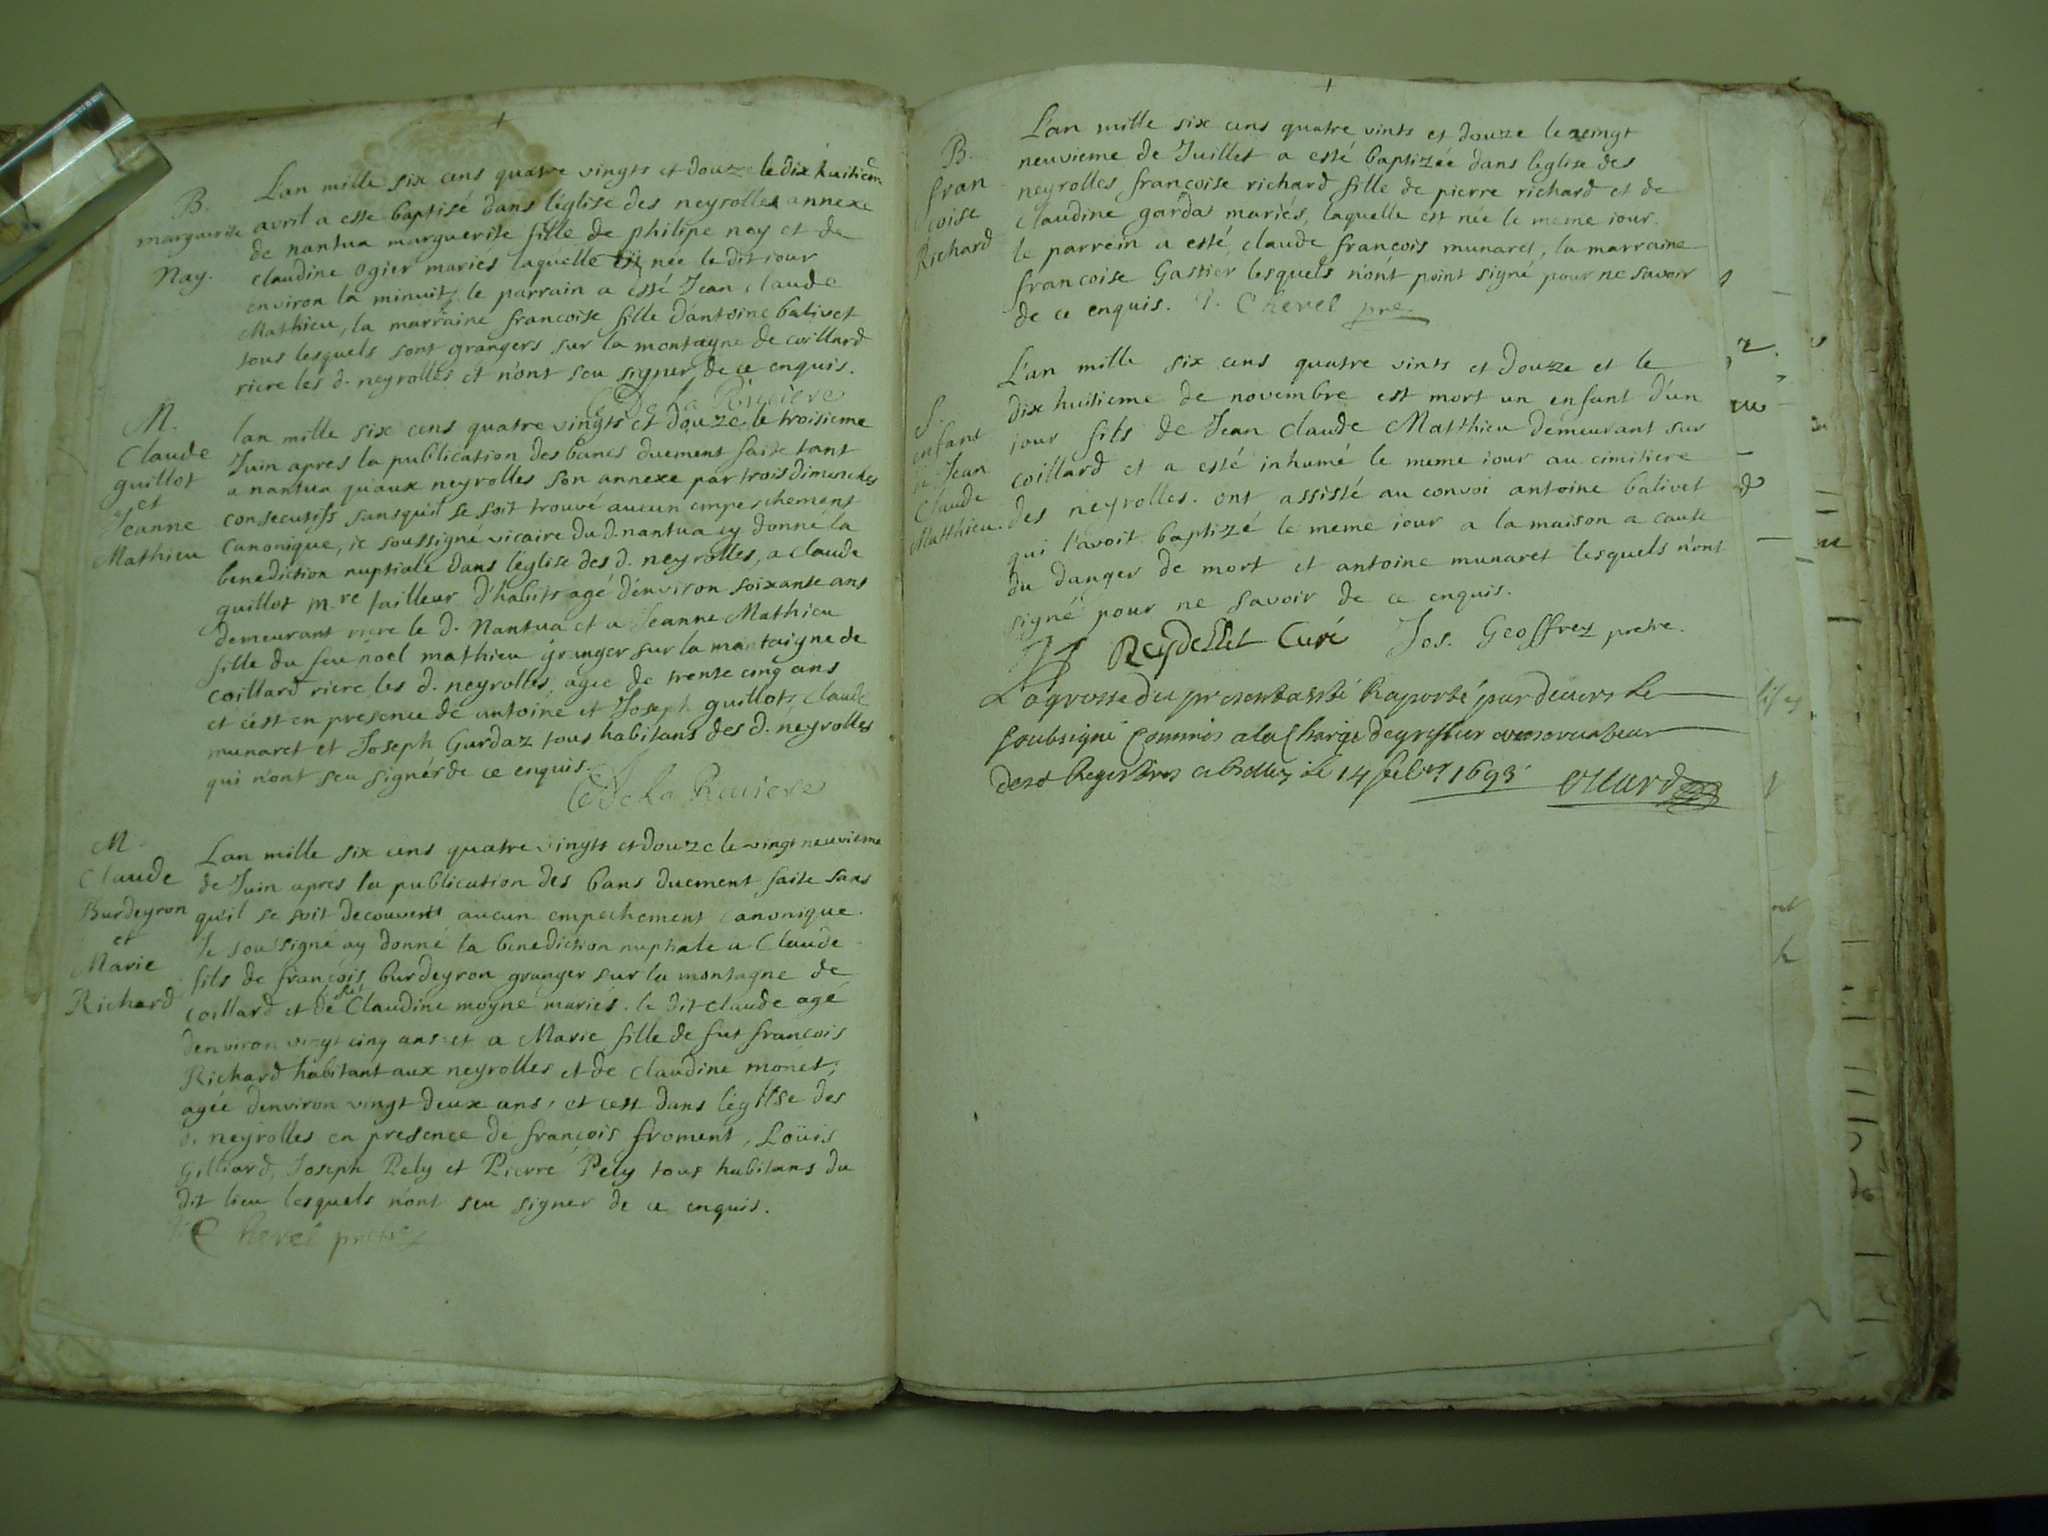 B.
marguerite
Nay.
Lan mille six cens quatre vingts et douze le dix huitiem
avril a esse baptisé dans l'église des neyrolles annexe
de nantua marguerite fille de philipe nay et de
claudine Ogier mariés laquelle est née le dit iour
environ la minuit, le parrain a esté Jean claude
Mathieu, la marraine francoise fille d'antoine balivet
tous lesquels sont grangers sur la montagne de coillard
riere les d. neyrolles et n'ont seu signer de ce enquis.
De la Riviere
M.
Claude
guillot
et
Jeanne
Mathieu
lan mille six cens quatre vingts et douze le troisieme
Juin apres la publication des bancs duement faite tant
a nantua qu'aux neyrolles son annexe par trois dimenches
consecutifs sans qu'il se soit trouvé aucun empeschement
canonique, je soussigné vicaire du d. nantua ay donné la
benediction nuptiale dans l'église des d. neyrolles, a claude
guillot m.re tailleur d'habits agé d'environ soixante ans
demeurant riere le d. Nantua et a Jeanne Mathieu
fille du feu noel mathieu granger sur la montaigne de
coillard riere les d. neyrolles, agée de trente cinq ans
et c'est en presence de antoine et Joseph guillots, claude
munaret et Joseph Gurdaz tous habitans des d. neyrolles
qui n'ont seu signér de ce enquis.
De la Riviere
M.
Claude
Burdeyron
et
Marie
Richard
Lan mille six cens quatre vingts et douze le vingt neuvieme
de Juin apres la publication des bans duement faite sans
qu'il se soit decouvert aucun empechement canonique.
Je sou'signé ay donné la benediction nuptiale a Claude
fils de francois burdeyron granger sur la montagne de
coillard et de Claudine moyne mariés. le dit claude agé
denviron vingt cinq ans et a Marie fille de fut francois
Richard habitant aux neyrolles et de claudine monet,
agée denviron vingt deux ans, et cest dans l'église des
d. neyrolles en presence de francois froment, Loüis
Gilliard, Joseph Pely et Pierre Pely tous habitans du
dit lieu lesquels n'ont seu signer de ce enquis.
Cherel pretre
B.
fran
coise
Richard
L'an mille six cens quatre vints et douze le veingt
neuvieme de Juillet a esté baptizée dans leglise des
neyrolles, francoise richard fille de pierre richard et de
claudine garda mariés, laquelle est née le meme iour.
le parrein a esté claude francois munaret, la marraine
francoise Gastier lesquels n'ont point signé pour ne savoir
de ce enquis. Cherel pre.
S.
enfant
Jean
Claude
Matthieu.
L'an mille six cens quatre vints et douze et le
dix huitieme de novembre est mort un enfant d'un
jour fils de Jean Claude Matthieu demeurant sur
coillard et a esté inhumé le meme iour au cimitiere
des neyrolles. ont assisté au convoi antoine balivet
qui l'avoit baptizé le meme iour a la maison a cause
du danger de mort et antoine munaret lesquels n'ont
signé pour ne savoir de ce enquis.
Reydellet Curé Jos. Geoffrez pretre.
La grosse du present a esté Raporté par devers le
soubsigné Commis a la Charge de greffier conservateur
desd Registres a Belley le 14 1693